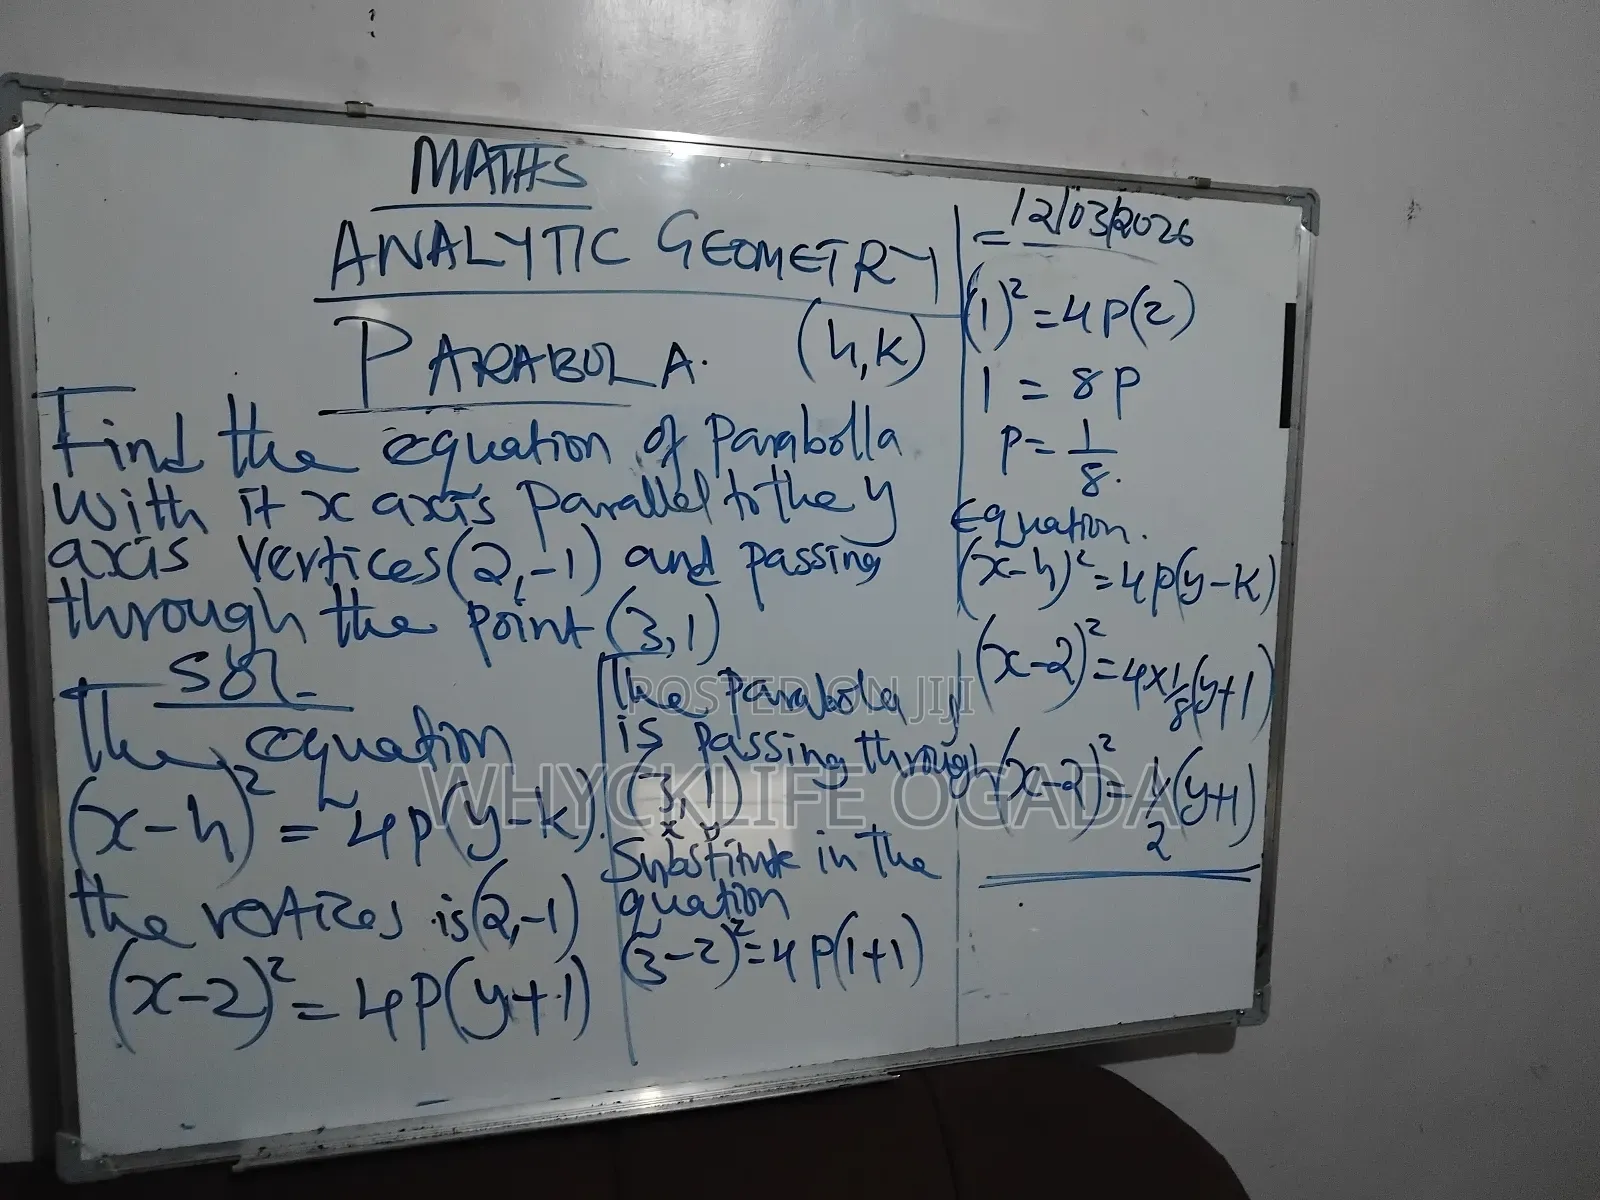 MATHS
ANALYTIC GEOMETRY
PARABOLA. (h,k)
Find the equation of parabolla
with it x axis parallel to the y
axis vertices (2,-1) and passing
through the point (3,1)
Sol
The equation
(x-h)² = 4p(y-k).
the vertices is (2,-1)
(x-2)² = 4p(y+1)
The parabola
is passing through
(3,1)
x, y
Substitute in the
equation
(3-2)² = 4p(1+1)
= 12/03/2026
(1)² = 4p(2)
1 = 8p
p = 1/8.
Equation.
(x-h)² = 4p(y-k)
(x-2)² = 4×1/8(y+1)
(x-2)² = 1/2(y+1)
POSTED ON JIJI
WHYCKLIFE OGADA